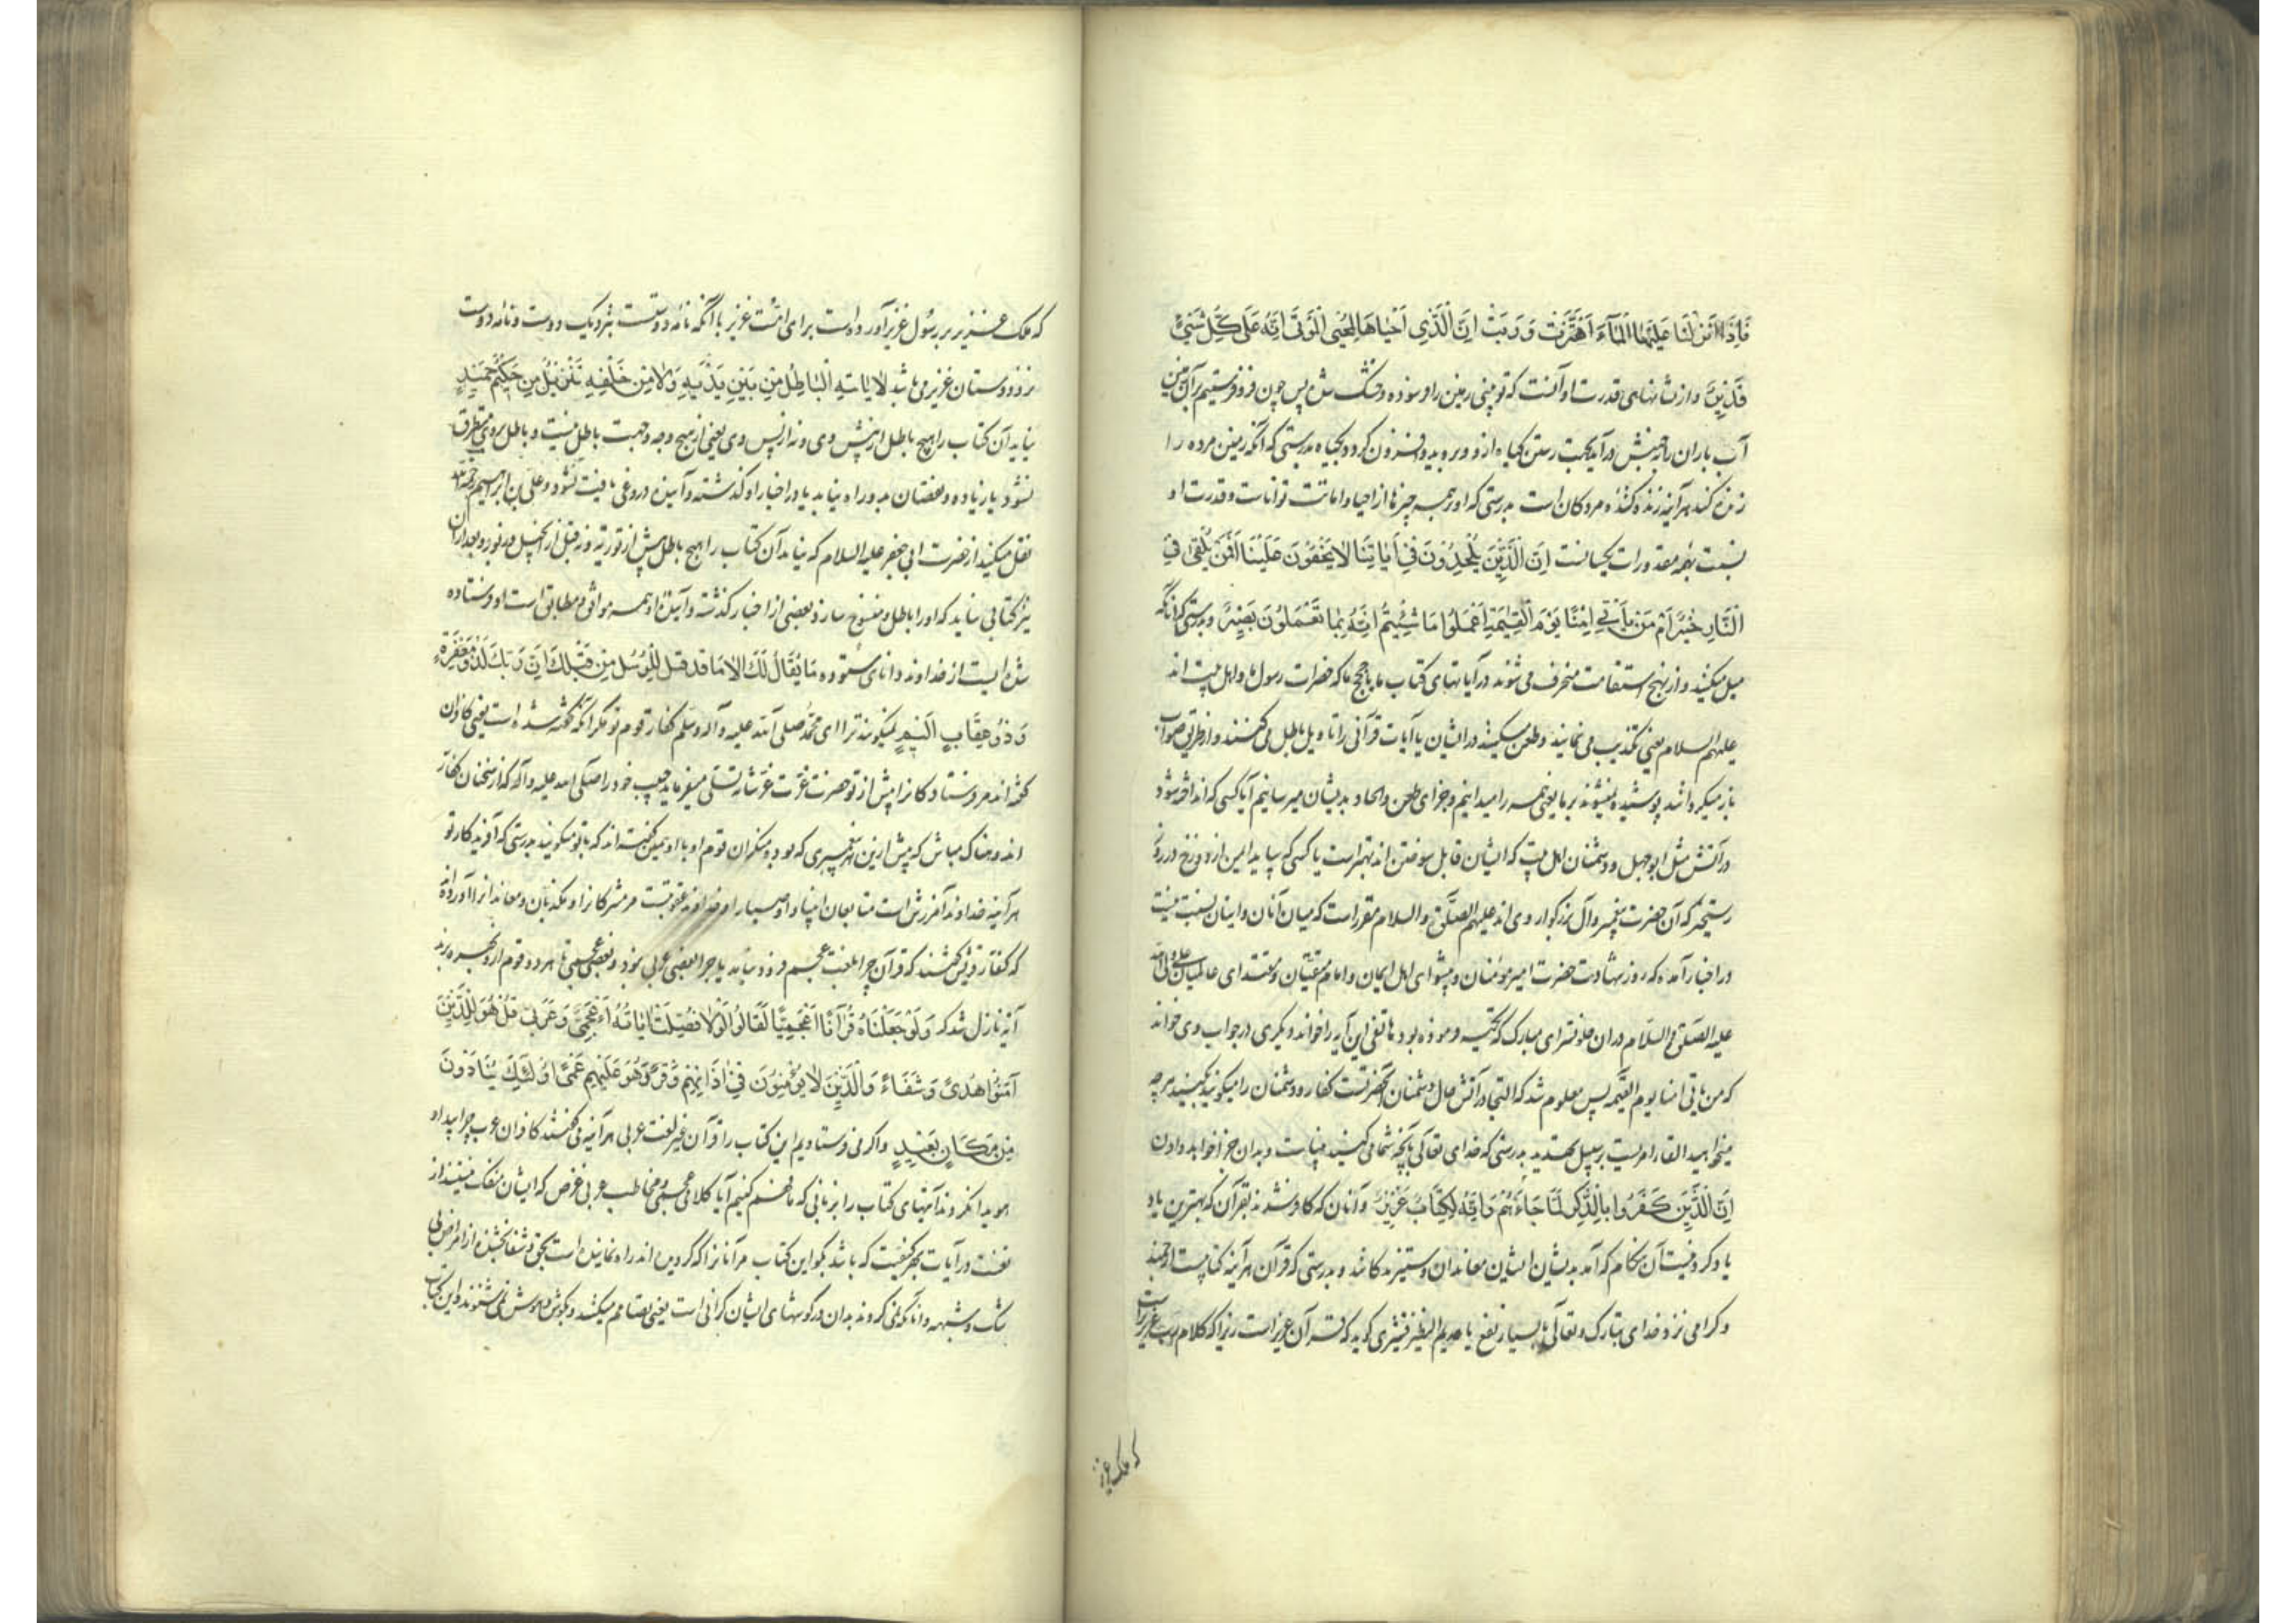 فَاِذَا اَنْزَلْنَا عَلَيْهَا الْمَآءَ اهْتَزَّتْ وَرَبَتْ اِنَّ الَّذِي اَحْيَاهَا لَمُحْيِي الْمَوْتٰى اِنَّهُ عَلٰى كُلِّ شَيْئٍ
قَدِيرٌ و از نشانهای قدرت او آنست که تو بینی زمین را فرسوده و خشک شده پس چون فرو فرستیم بر آن زمین
آب باران را بجنبش درآید بجهت رستن گیاه از و و بروید و افزون گردد گیاه بدرستی که آنکه زمین مرده را
زنده کند هر آینه زنده کننده مردکان است بدرستی که او بر همه چیزها از احیا و اماتت تواناست و قدرت او
نسبت بهمه مقدورات یکسانست اِنَّ الَّذِينَ يُلْحِدُونَ فِي اٰيَاتِنَا لَا يَخْفَوْنَ عَلَيْنَا اَفَمَنْ يُلْقٰى فِي
النَّارِ خَيْرٌ اَمْ مَنْ يَأْتِي اٰمِنًا يَوْمَ الْقِيٰمَةِ اِعْمَلُوا مَا شِئْتُمْ اِنَّهُ بِمَا تَعْمَلُونَ بَصِيرٌ و بدرستی که آنانکه
میل میکنند و از نهج استقامت منحرف می شوند در آیاتهای کتاب ما یا حجج ما که حضرات رسول ما و اهل بیت اند
علیهم السلام یعنی تکذیب می نمایند و طعن میکنند در ایشان یا آیات قرآنی را تاویل باطل می کنند و از طریق صواب
باز میگردانند پوشیده نمیشوند بر ما یعنی همه را میدانیم و جزای طعن و الحاد بدیشان میرسانیم آیا کسی که انداخته شود
در آتش مثل ابوجهل و دشمنان اهل بیت که ایشان قابل سوختن اند بهتر است یا کسی که بیاید ایمن از دوزخ در روز
رستخیز که آن حضرت پیغمبر و آل بزرکوار وی اند علیهم الصلوة و السلام مقرر است که میان آنان و اینان نسبت نیست
در اخبار آمده که روز شهادت حضرت امیر مؤمنان و پیشوای اهل ایمان و امام متقیان و مقتدای عالمیان علی ولی الله
علیه الصلوة و السلام در ان خلوتسرای مبارک که تکیه فرموده بود هاتفی این آیه را خواند و دیگری در جواب وی خواند
که من یاتی امنا یوم القیمه پس معلوم شد که التجا در آتش حال دشمنان آنحضرتست کفار و دشمنان را میگویند بکنید هر چه
میخواهید القا امریست بر سبیل تهدید بدرستی که خدای تعالی بآنچه شما می کنید بیناست و بدان جزا خواهد دادن
اِنَّ الَّذِينَ كَفَرُوا بِالذِّكْرِ لَمَّا جَاءَهُمْ وَاِنَّهُ لَكِتَابٌ عَزِيزٌ و آنان که کافر شدند بقرآن که بهترین یاد
یاد کردنیست آن هنگام که آمد بدیشان ایشان معاندان و ستیزندکانند و بدرستی که قرآن هر آینه کتابیست ارجمند
و کرامی نزد خدای تبارک و تعالی یا بسیار نفع یا عدیم النظیر قشیری گوید که قرآن عزیز است زیرا که کلام رب عزیز است
که ملک عزیز
که ملک عزیز بر رسول عزیز آورده است برای امت عزیز با آنکه نامه دوستست بنزدیک دوست و نامه دوست
نزد دوستان عزیز می باشد لَا يَاْتِيهِ الْبَاطِلُ مِنْ بَيْنِ يَدَيْهِ وَلَا مِنْ خَلْفِهِ تَنْزِيلٌ مِنْ حَكِيمٍ حَمِيدٍ
نیاید آن کتاب را هیچ باطل از پیش وی و نه از پس وی یعنی از هیچ وجه و جهت باطل نیست و باطل بروی متطرق
نشود یا زیاده و نقصان بدو راه نیابد یا در اخبار او کذشته و آینده دروغی یافت نشود و علی بن ابراهیم رحمه الله
نقل میکند از حضرت ابی جعفر علیه السلام که نیاید آن کتاب را هیچ باطل پیش از توریة و نه قبل از انجیل و زبور و بعد از ان
نیز کتابی نیاید که او را باطل و منسوخ سازد و بعضی از اخبار کذشته و آینده او همه موافق و مطابق است او فرستاده
شده ایست از خداوند دانای ستوده مَا يُقَالُ لَكَ اِلَّا مَا قَدْ قِيلَ لِلرُّسُلِ مِنْ قَبْلِكَ اِنَّ رَبَّكَ لَذُو مَغْفِرَةٍ
وَ ذُو عِقَابٍ اَلِيمٍ نمیکویند ترا ای محمد صلی الله علیه و آله و سلم کفار قوم تو مکر آنکه گفته شده است یعنی کافران
گفته اند مر فرستادکانرا پیش از تو حضرت عزت عز شانه تسلی میفرماید حبیب خود را صلی الله علیه و آله که از سخنان کفار
اندوهناک مباش که پیش ازین هر پیغمبری که بود منکران قوم او با او همین گفته اند که با تو میکویند بدرستی که آفریدکار تو
هر آینه خداوند آمرزش است متابعان انبیا و اوصیا را و خداوند عقوبتست مر مشرکانرا و مکذبان و معاندانرا آورده اند
که کفار قریش گفتند که قرآن چرا بلغت عجم فرود نیاید یا چرا بعضی عربی نبود و بعضی عجمی تا هر دو قوم از و بهره برند
آیه نازل شد که وَلَوْ جَعَلْنَاهُ قُرْاٰنًا اَعْجَمِيًّا لَقَالُوا لَوْلَا فُصِّلَتْ اٰيَاتُهُ ءَاَعْجَمِيٌّ وَ عَرَبِيٌّ قُلْ هُوَ لِلَّذِينَ
اٰمَنُوا هُدًى وَ شِفَاءٌ وَالَّذِينَ لَا يُؤْمِنُونَ فِي اٰذَانِهِمْ وَقْرٌ وَ هُوَ عَلَيْهِمْ عَمًى اُولٰئِكَ يُنَادَوْنَ
مِنْ مَكَانٍ بَعِيدٍ و اکر می فرستادیم این کتاب را قرآن غیر لغت عربی هر آینه می گفتند کافران عرب چرا پیدا و
هویدا نکردند آیتهای کتاب را بزبانی که ما فهم کنیم آیا کلامی عجمی و مخاطب عربی غرض که ایشان منفک نیستند از
تعنت در آیات بهر کیفیت که باشد بکو این کتاب مر آنانرا که کرویده اند راه نماینده است بحق و شفا بخشنده از امراض
شک و شبهه و آنانکه نمی کروند بدان در کوشهای ایشان کرانی است یعنی تصامم میکنند و بکوش هوش نمی شنوند و این کتاب